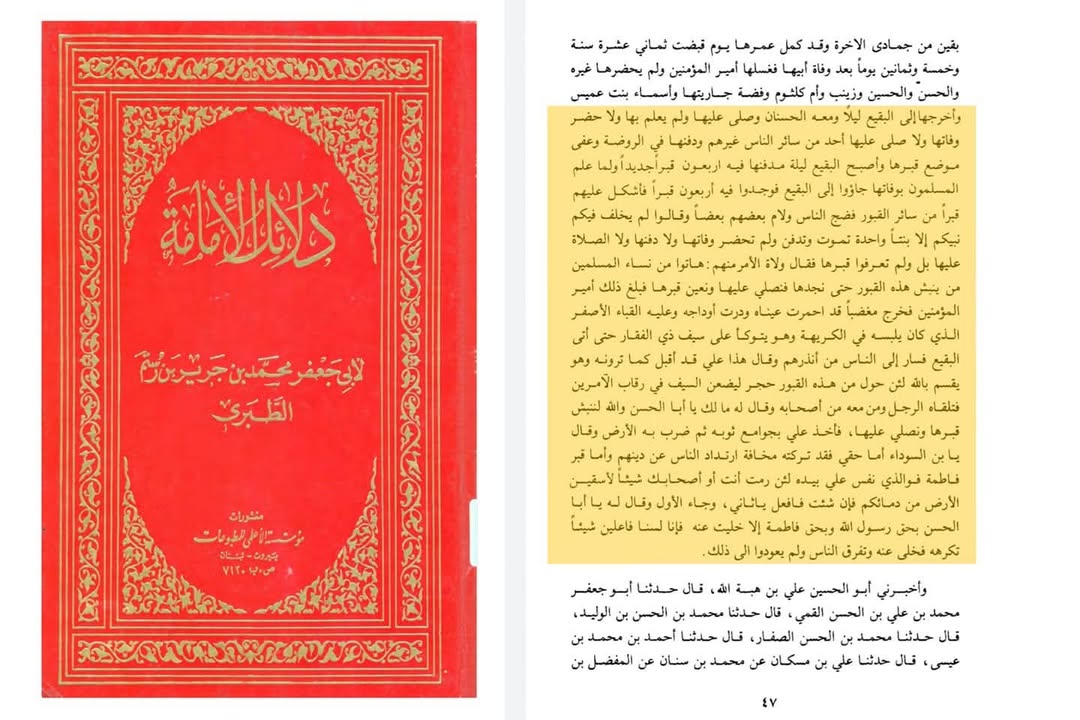 دلائل الأمامة
لابي جعفر محمد بن جرير بن رستم
الطبري
منشورات
مؤسسة الأعلمي للمطبوعات
بيروت - لبنان
ص.ب ٧١٢٠
بقين من جمادى الاخرة وقد كمل عمرها يوم قبضت ثماني عشرة سنة
وخمسة وثمانين يوماً بعد وفاة أبيها فغسلها أمير المؤمنين ولم يحضرها غيره
والحسنّ والحسين وزينب وأم كلثوم وفضة جاريتها وأسماء بنت عميس
وأخرجها إلى البقيع ليلًا ومعه الحسنان وصلى عليها ولم يعلم بها ولا حضر
وفاتها ولا صلى عليها أحد من سائر الناس غيرهم ودفنها في الروضة وعفى
موضع قبرها وأصبح البقيع ليلة مدفنها فيه اربعون قبراً جديداً ولما علم
المسلمون بوفاتها جاؤوا إلى البقيع فوجدوا فيه أربعون قبراً فأشكل عليهم
قبراً من سائر القبور فضج الناس ولام بعضهم بعضاً وقالوا لم يخلف فيكم
نبيكم إلا بنتاً واحدة تموت وتدفن ولم تحضر وفاتها ولا دفنها ولا الصلاة
عليها بل ولم تعرفوا قبرها فقال ولاة الأمر منهم: هاتوا من نساء المسلمين
من ينبش هذه القبور حتى نجدها فنصلي عليها ونعين قبرها فبلغ ذلك أمير
المؤمنين فخرج مغضباً قد احمرت عيناه ودرت أوداجه وعليه القباء الأصفر
الذي كان يلبسه في الكريهة وهو يتوكأ على سيف ذي الفقار حتى أتى
البقيع فسار إلى الناس من أنذرهم وقال هذا علي قد أقبل كما ترونه وهو
يقسم بالله لئن حول من هذه القبور حجر ليضعن السيف في رقاب الآمرين
فتلقاه الرجل ومن معه من أصحابه وقال له ما لك يا أبا الحسن والله لننبش
قبرها ونصلي عليها، فأخذ علي بجوامع ثوبه ثم ضرب به الأرض وقال
يا بن السوداء أما حقي فقد تركته مخافة ارتداد الناس عن دينهم وأما قبر
فاطمة فوالذي نفس علي بيده لئن رمت أنت أو أصحابك شيئاً لأسقين
الأرض من دمائكم فإن شئت فافعل يا ثاني، وجاء الأول وقال له يا أبا
الحسن بحق رسول الله وبحق فاطمة إلا خليت عنه فإنا لسنا فاعلين شيئاً
تكرهه فخلى عنه وتفرق الناس ولم يعودوا الى ذلك.
وأخبرني أبو الحسين علي بن هبة الله، قال حدثنا أبو جعفر
محمد بن علي بن الحسن القمي، قال حدثنا محمد بن الحسن بن الوليد،
قال حدثنا محمد بن الحسن الصفار، قال حدثنا أحمد بن محمد بن
عيسى، قال حدثنا علي بن مسكان عن محمد بن سنان عن المفضل بن
٤٧